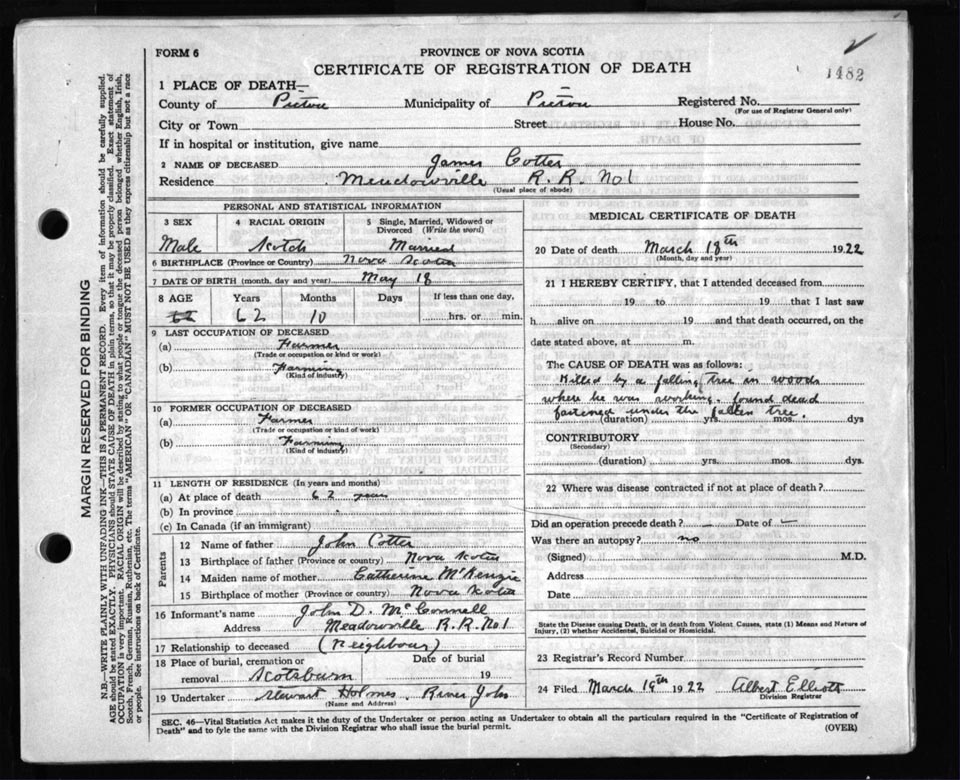 FORM 6
PROVINCE OF NOVA SCOTIA
CERTIFICATE OF REGISTRATION OF DEATH
1482
1 PLACE OF DEATH—
County of Pictou Municipality of Pictou Registered No.
(For use of Registrar General only)
City or Town Street House No.
If in hospital or institution, give name
2 NAME OF DECEASED James Cotter
Residence Meadowville R.R. No 1
(Usual place of abode)
PERSONAL AND STATISTICAL INFORMATION
3 SEX 4 RACIAL ORIGIN 5 Single, Married, Widowed or Divorced (Write the word)
Male Scotch Married
6 BIRTHPLACE (Province or Country) Nova Scotia
7 DATE OF BIRTH (month, day and year) May 18
8 AGE Years Months Days If less than one day,
62 62 10 hrs. or min.
9 LAST OCCUPATION OF DECEASED
(a) Farmer
(Trade or occupation or kind of work)
(b) Farming
(Kind of industry)
10 FORMER OCCUPATION OF DECEASED
(a) Farmer
(Trade or occupation or kind of work)
(b) Farming
(Kind of industry)
11 LENGTH OF RESIDENCE (In years and months)
(a) At place of death 62 years
(b) In province
(c) In Canada (if an immigrant)
Parents
12 Name of father John Cotter
13 Birthplace of father (Province or country) Nova Scotia
14 Maiden name of mother Catherine McKenzie
15 Birthplace of mother (Province or country) Nova Scotia
16 Informant's name John D. McConnell
Address Meadowville R.R. No 1
17 Relationship to deceased (Neighbour)
18 Place of burial, cremation or removal Scotsburn Date of burial 19
19 Undertaker Stewart Holmes. River John
(Name and Address)
MEDICAL CERTIFICATE OF DEATH
20 Date of death March 18th 1922
(Month, day and year)
21 I HEREBY CERTIFY, that I attended deceased from
19 to 19 that I last saw
h alive on 19 and that death occurred, on the
date stated above, at m.
The CAUSE OF DEATH was as follows:
Killed by a falling tree in woods
where he was working. found dead
fastened under the fallen tree.
(duration) yrs. mos. dys
CONTRIBUTORY
(Secondary)
(duration) yrs. mos. dys.
22 Where was disease contracted if not at place of death?
Did an operation precede death? — Date of —
Was there an autopsy? no
(Signed) M.D.
Address
Date
State the Disease causing Death, or in death from Violent Causes, state (1) Means and Nature of Injury, (2) whether Accidental, Suicidal or Homicidal.
23 Registrar's Record Number
24 Filed March 19th 1922 Albert Elliott
Division Registrar
SEC. 46—Vital Statistics Act makes it the duty of the Undertaker or person acting as Undertaker to obtain all the particulars required in the "Certificate of Registration of
Death" and to fyle the same with the Division Registrar who shall issue the burial permit. (OVER)
MARGIN RESERVED FOR BINDING
N.B.—WRITE PLAINLY WITH UNFADING INK—THIS IS A PERMANENT RECORD. Every item of information should be carefully supplied.
AGE should be stated EXACTLY. PHYSICIANS should STATE CAUSE OF DEATH in plain terms, so that it may be properly classified. Exact statement of
OCCUPATION is very important. RACIAL ORIGIN will be described by stating to what people or tongue the deceased person belonged whether English, Irish,
Scotch, French, German, Russian, Ruthenian, etc. The terms "AMERICAN" OR "CANADIAN" MUST NOT BE USED as they express citizenship but not a race
or people. See instructions on back of Certificate.